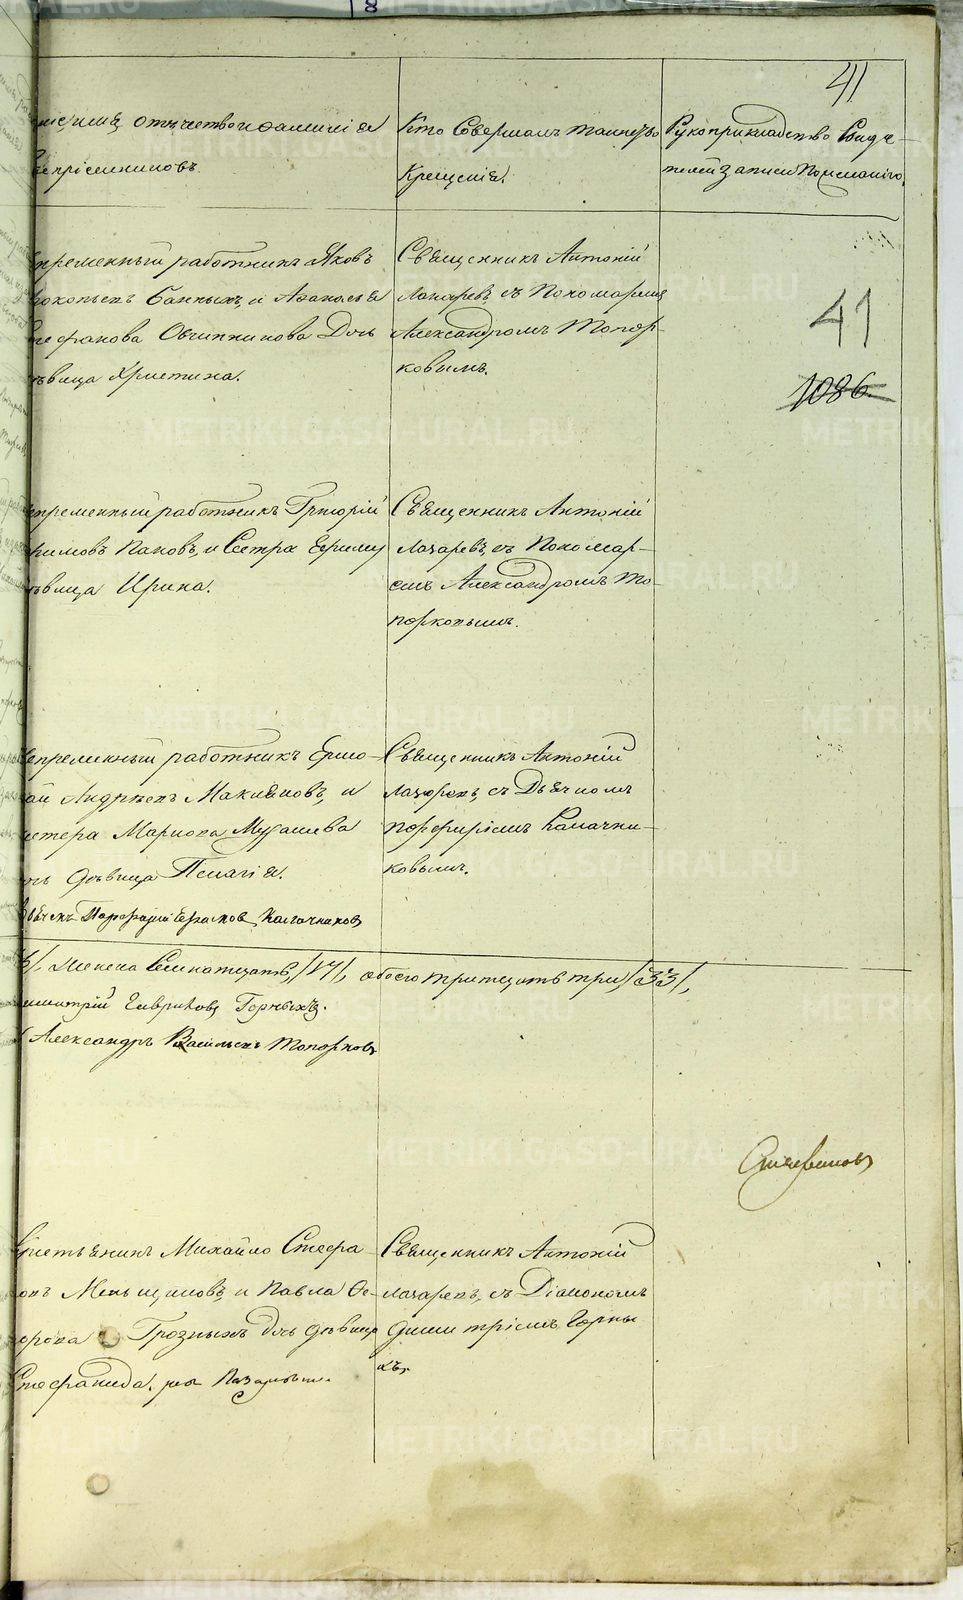 41
имя, отчество и фамилія
воспріемниковъ.
Кто Совершалъ таинство
Крещенія.
Рукоприкладство Свиде-
телей записи По желанію.
41
1086.
непременный работникъ Яковъ
Прокопьевъ Банныхъ, и Афанасья
Стефанова Овчинникова Дочь
девица Христина.
Священникъ Антоній
Лазаревъ, съ Пономаремъ
Александромъ Топор-
ковымъ.
непременный работникъ Григорій
Панковъ, и Сестра Ефиму
девица Ирина.
Священникъ Антоній
Лазаревъ, съ Пономар-
емъ Александромъ То-
порковымъ.
Непременный работникъ Ермо-
лай Андреевъ Макѣяновъ, и
Маркова Мугашева
дочь девица Пелагія.
Священникъ Антоній
Лазаревъ, съ Дьячкомъ
Порфиріемъ Калачни-
ковымъ.
Дьячекъ Порфирій Калачниковъ
Женска Семнатцать, /17/, обоего тритцать три, /33/,
Димитрій Гавриловъ Горныхъ.
Александръ Васильевъ Топорковъ
Крестьянинъ Михайло Стефа-
новъ Меньщиковъ, и Павла Фе-
дорова Грозныхъ дочь девица
Стефанида.
Священникъ Антоній
Лазаревъ, съ Діакономъ
Димитріемъ Горны-
хъ.
METRIKI.GASO-URAL.RU